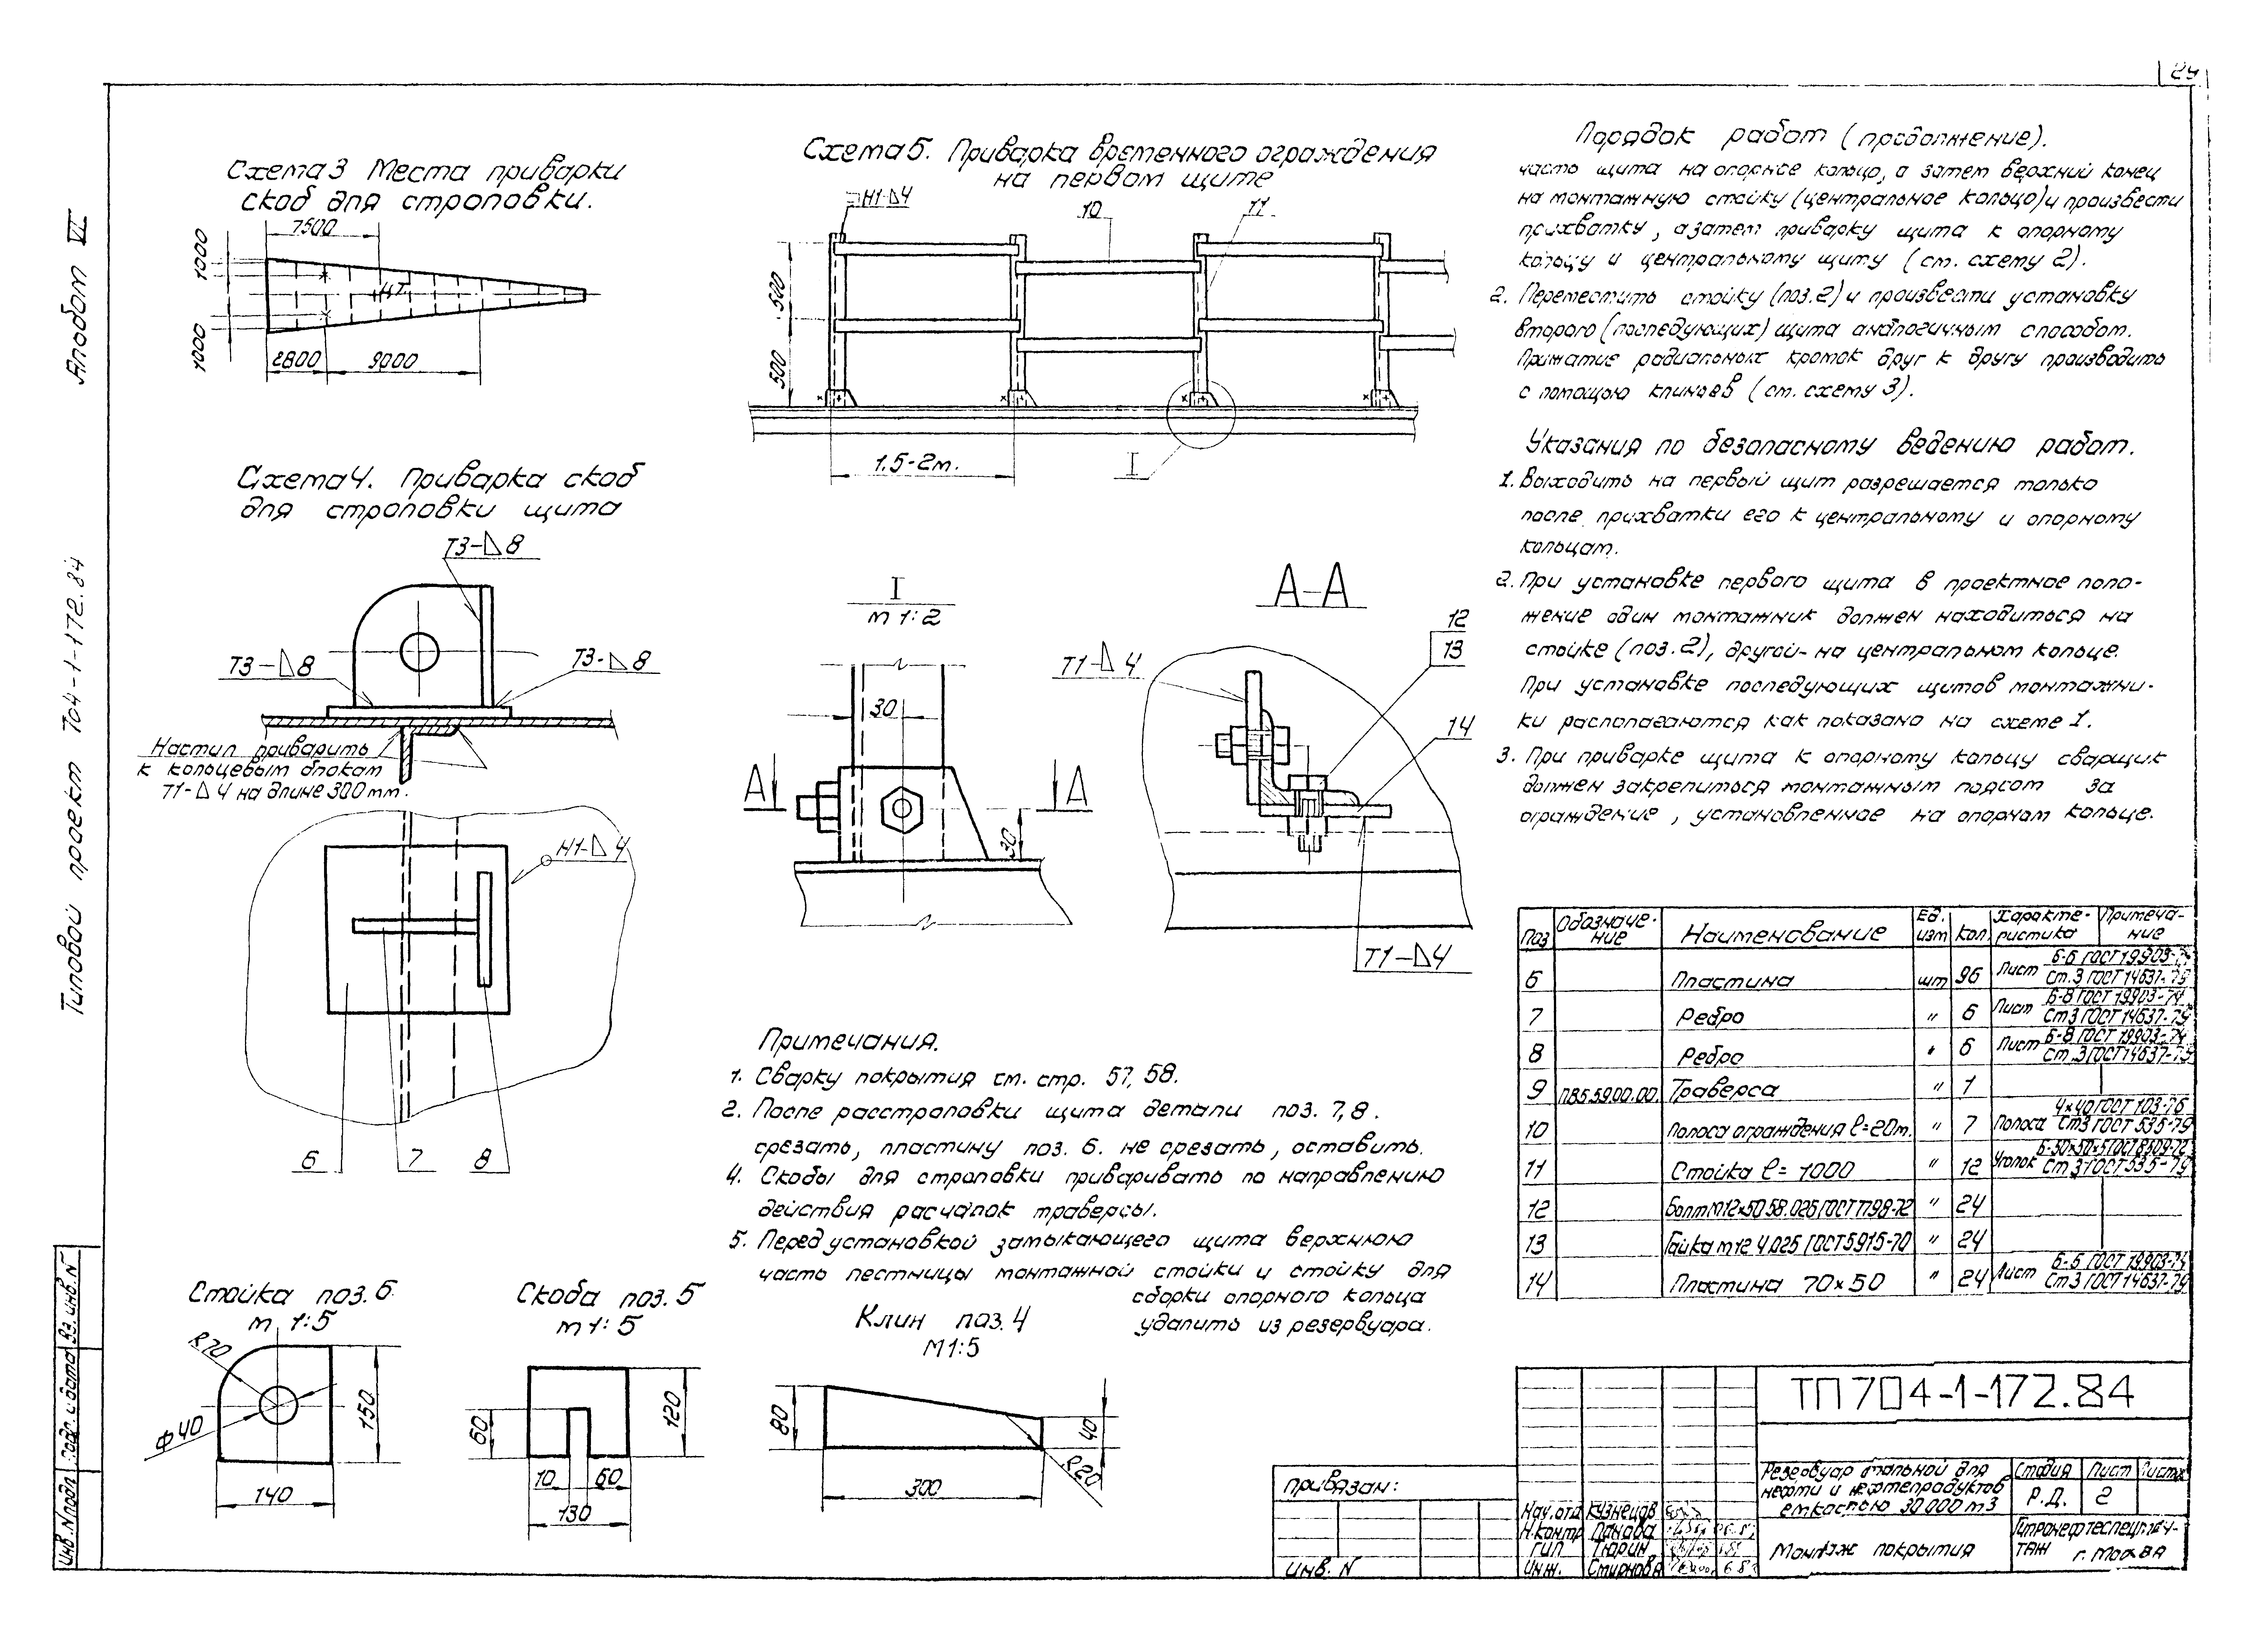 24
Альбом VI
Типовой проект 704-1-172.84
Схема 3 Места приварки
скоб для строповки.
7500
1000
1000
ц.т.
2800
9000
Схема 4. Приварка скоб
для строповки щита
Т3-△8
Т3-△8
Т3-△8
Настил приварить
к кольцевым блокам
Т1-△4 на длине 300мм.
Н1-△4
6
7
8
Схема 5. Приварка временного ограждения
на первом щите
Н1-△4
10
11
500
500
1.5-2м.
I
I
М 1:2
30
А
А
30
А-А
Т1-△4
12
13
14
Т1-△4
Примечания.
1. Сварку покрытия см. стр. 57, 58.
2. После расстроповки щита детали поз. 7,8.
срезать, пластину поз. 6. не срезать, оставить.
4. Скобы для строповки приваривать по направлению
действия расчалок траверсы.
5. Перед установкой замыкающего щита верхнюю
часть лестницы монтажной стойки и стойку для
сборки опорного кольца
удалить из резервуара.
Стойка поз. 6
м 1:5
R70
Ф40
150
140
Скоба поз. 5
м 1:5
60
120
10
60
130
Клин поз. 4
М1:5
80
40
R20
300
Порядок работ (продолжение).
часть щита на опорное кольцо, а затем верхний конец
на монтажную стойку (центральное кольцо) и произвести
прихватку, а затем приварку щита к опорному
кольцу и центральному щиту (см. схему 2).
2. Переместить стойку (поз. 2) и произвести установку
второго (последующих) щита аналогичным способом.
Прижатие радиальных кромок друг к другу производить
с помощью клиньев (см. схему 3).
Указания по безопасному ведению работ.
1. Выходить на первый щит разрешается только
после прихватки его к центральному и опорному
кольцам.
2. При установке первого щита в проектное поло-
жение один монтажник должен находиться на
стойке (поз. 2), другой - на центральном кольце.
При установке последующих щитов монтажни-
ки располагаются как показано на схеме 1.
3. При приварке щита к опорному кольцу сварщик
должен закрепиться монтажным поясом за
ограждение, установленное на опорном кольце.
Поз Обозначе-ние Наименование Ед. изм Кол. Характе-ристика Примеча-ние
6 Пластина шт 96 Лист Б-6 ГОСТ 19903-74 Ст.3 ГОСТ 14637-79
7 Ребро " 6 Лист Б-8 ГОСТ 19903-74 Ст3 ГОСТ 14637-79
8 Ребро " 6 Лист Б-8 ГОСТ 19903-74 Ст.3 ГОСТ 14637-79
9 ПВ5.59.00.00 Траверса " 1
10 Полоса ограждения ℓ=20м. " 7 Полоса 4×40 ГОСТ 103-76 Ст3 ГОСТ 535-79
11 Стойка ℓ= 1000 " 12 Уголок Б-50×50×5 ГОСТ 8509-72 Ст3 ГОСТ 535-79
12 Болт М12×50.58.026 ГОСТ 7798-72 " 24
13 Гайка м12.4.025 ГОСТ 5915-70 " 24
14 Пластина 70×50 " 24 Лист Б-6 ГОСТ 19903-74 Ст3 ГОСТ 14637-79
ТП 704-1-172.84
Резервуар стальной для
нефти и нефтепродуктов
емкостью 30.000 м3
Стадия Лист Листов
Р.Д. 2
Монтаж покрытия
Гипронефтеспецмон-
таж г. Москва
Нач. отд Кузнецов
Н.контр Панова
ГИП Тюрин
Инж. Смирнова
Привязан:
Инв. N
Инв. N подл. Подп. и дата Вз. инв. N